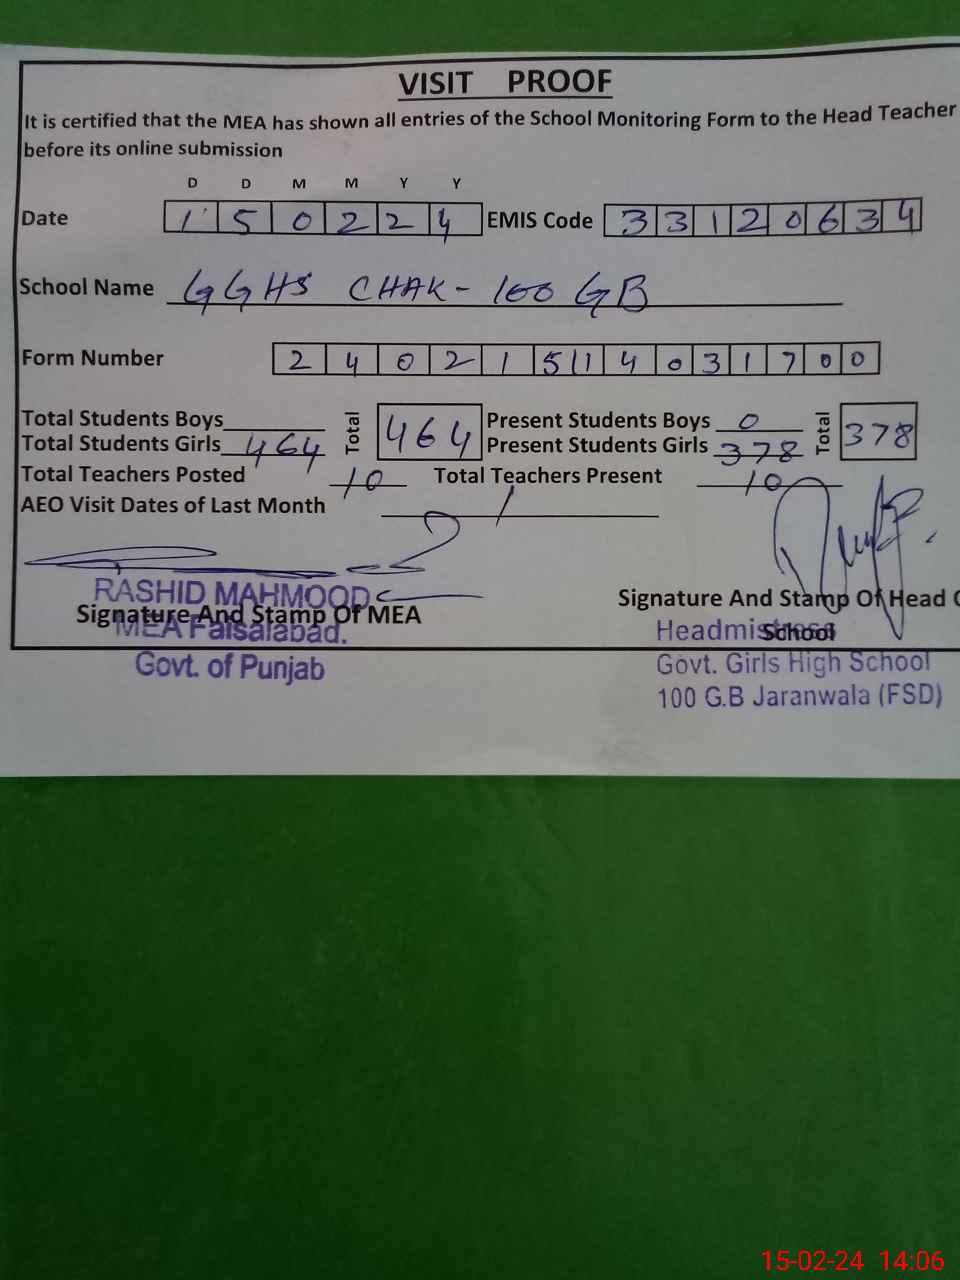 VISIT PROOF
It is certified that the MEA has shown all entries of the School Monitoring Form to the Head Teacher
before its online submission
D D M M Y Y
Date 1 5 0 2 2 4 EMIS Code 3 3 1 2 0 6 3 4
School Name GGHS CHAK - 100 GB
Form Number 2 4 0 2 1 5 1 4 0 3 1 7 0 0
Total Students Boys Total 464 Present Students Boys 0 Total 378
Total Students Girls 464 Present Students Girls 378
Total Teachers Posted 10 Total Teachers Present 10
AEO Visit Dates of Last Month /
RASHID MAHMOOD
Signature And Stamp Of MEA
MEA Faisalabad.
Govt. of Punjab
Signature And Stamp Of Head
School
Headmistress
Govt. Girls High School
100 G.B Jaranwala (FSD)
15-02-24 14:06